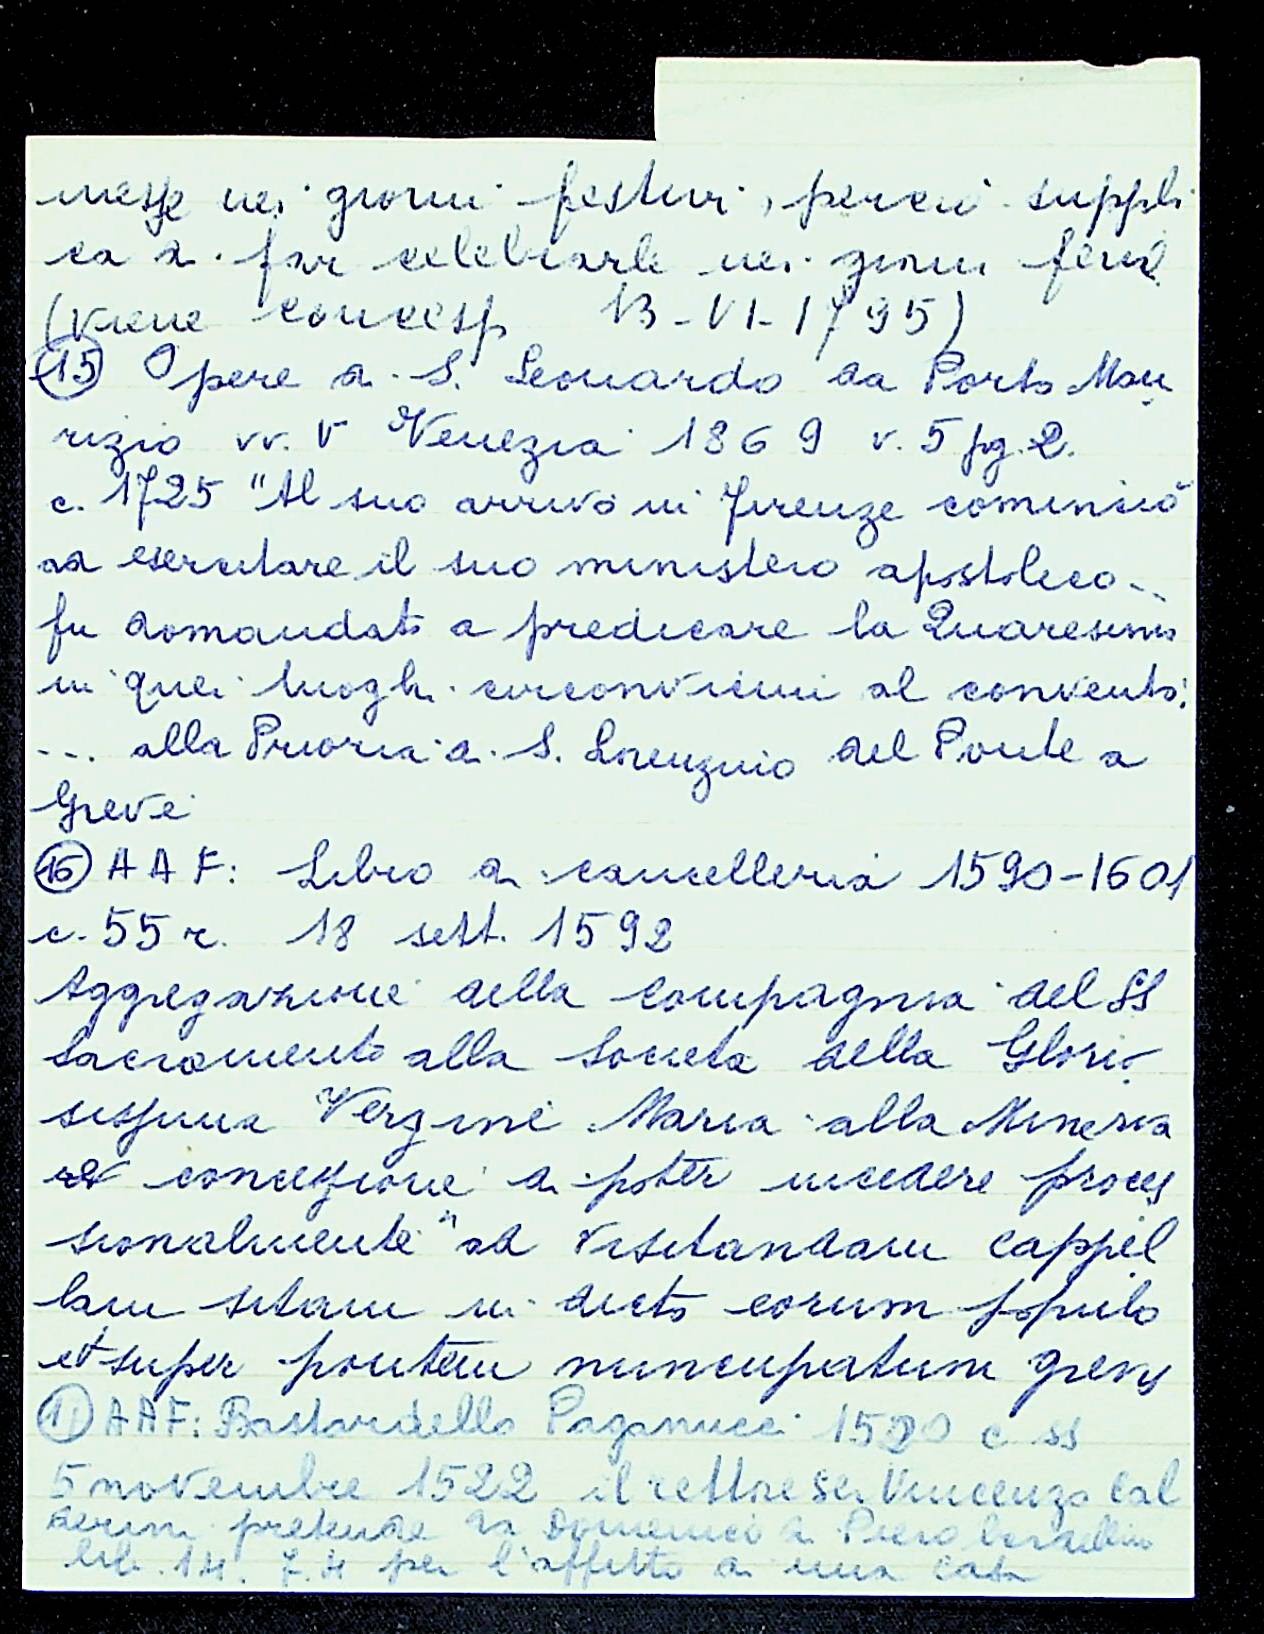 messe nei giorni festivi, perciò suppli
ca di far celebrarle nei giorni feriali
(viene concesso 13-VI-1795)
(15) Opere di S. Leonardo da Porto Mau
rizio vv. V Venezia 1869 v. 5 pg. 2.
c. 1725 "Al suo arrivo in Firenze cominciò
ad esercitare il suo ministero apostolico...
fu domandato a predicare la Quaresima
in quei luoghi circonvicini al convento:
... alla Prioria di S. Lorenzino del Ponte a
Greve
(16) AAF: Libro di cancelleria 1590-1601
c. 55 r. 18 sett. 1592
Aggregazione della Compagnia del SS
Sacramento alla Società della Glorio
sissima Vergine Maria alla Minerva
ed concessione di poter incedere proces
sionalmente "ad visitandam cappel
lam sitam in dicto eorum populo
et super pontem nuncupatum greve
AAF: Bastardello Paganucci c
5 novembre 1522 il rettore Ser Vincenzo Cal
derini pretende da Domenico di Piero
lib. 14. 7.4 per l'affitto di una casa